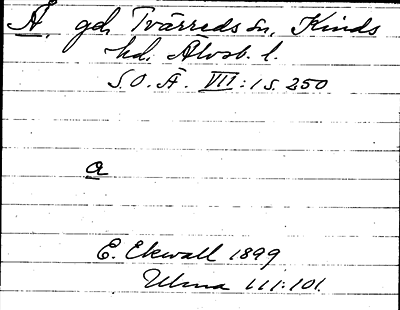 Å, gd, Tvärreds sn, Kinds
hd, Älvsb. l.
S.O.Ä. VII:1 s. 250
a
E. Ekwall 1899
Ulma 111:101.